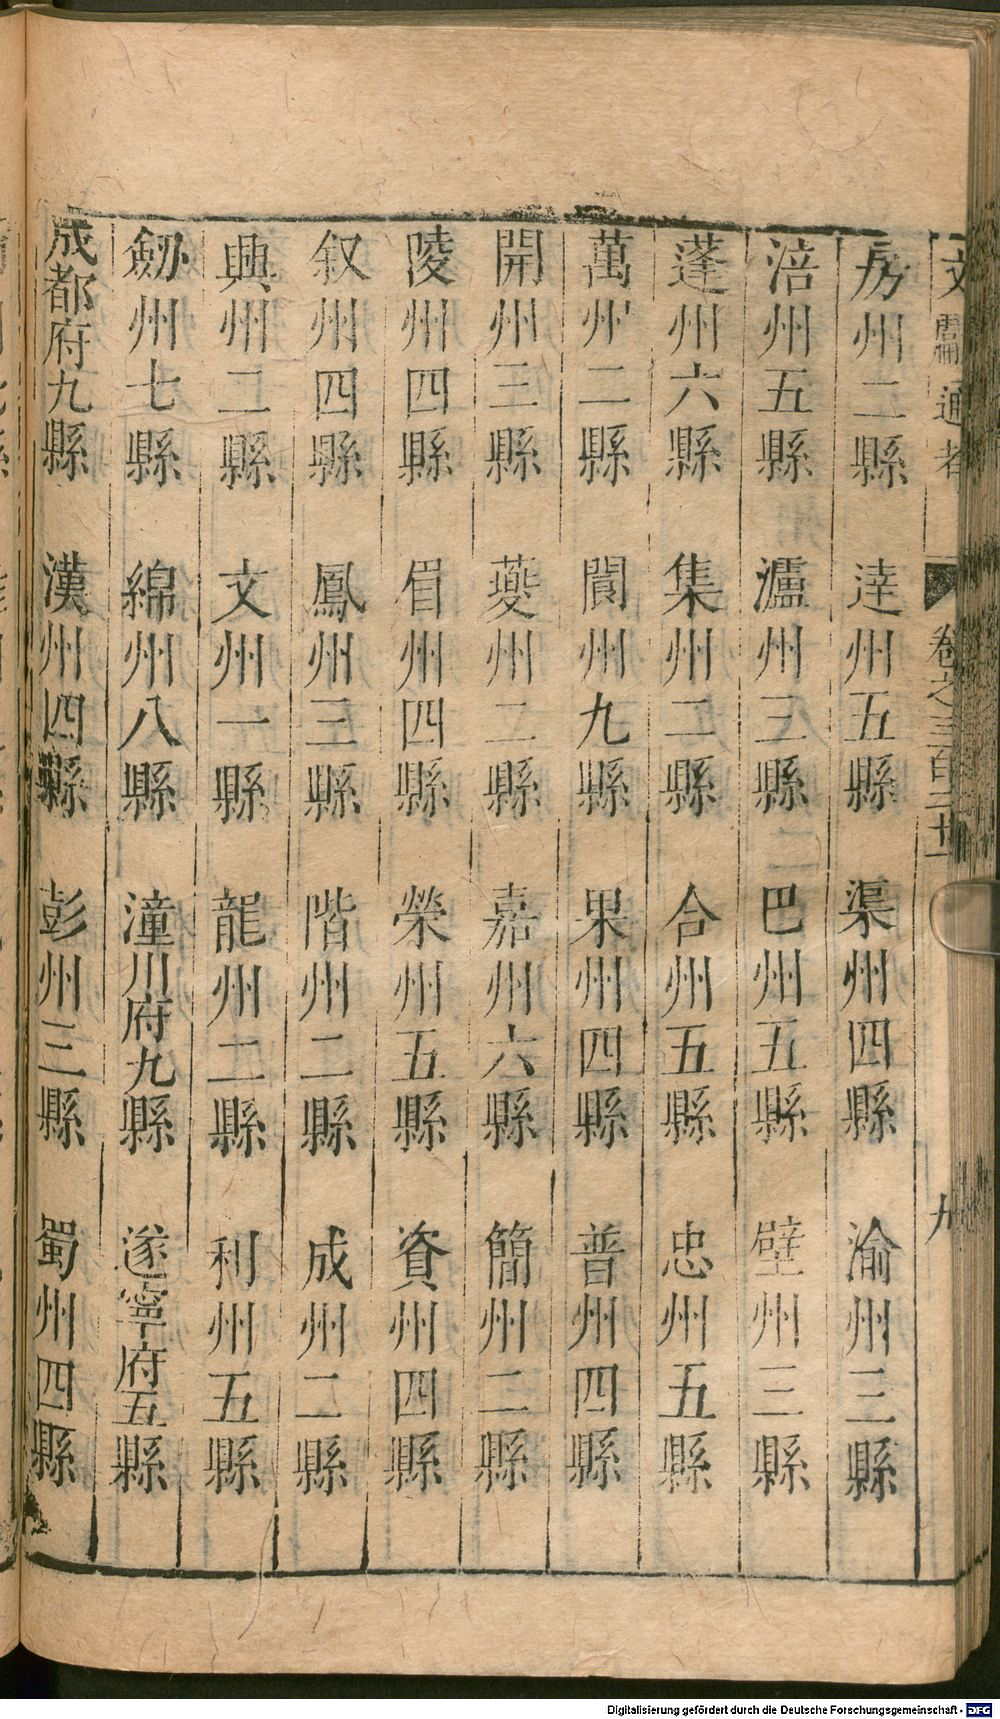 文獻通考 卷之三百二十一 九
房州二縣 達州五縣 渠州四縣 渝州三縣
涪州五縣 瀘州三縣 巴州五縣 壁州三縣
蓬州六縣 集州二縣 合州五縣 忠州五縣
萬州二縣 閬州九縣 果州四縣 普州四縣
開州三縣 夔州二縣 嘉州六縣 簡州二縣
陵州四縣 眉州四縣 榮州五縣 資州四縣
叙州四縣 鳳州三縣 階州二縣 成州二縣
興州二縣 文州一縣 龍州二縣 利州五縣
劒州七縣 綿州八縣 潼川府九縣 遂寧府五縣
成都府九縣 漢州四縣 彭州三縣 蜀州四縣
Digitalisierung gefördert durch die Deutsche Forschungsgemeinschaft - DFG